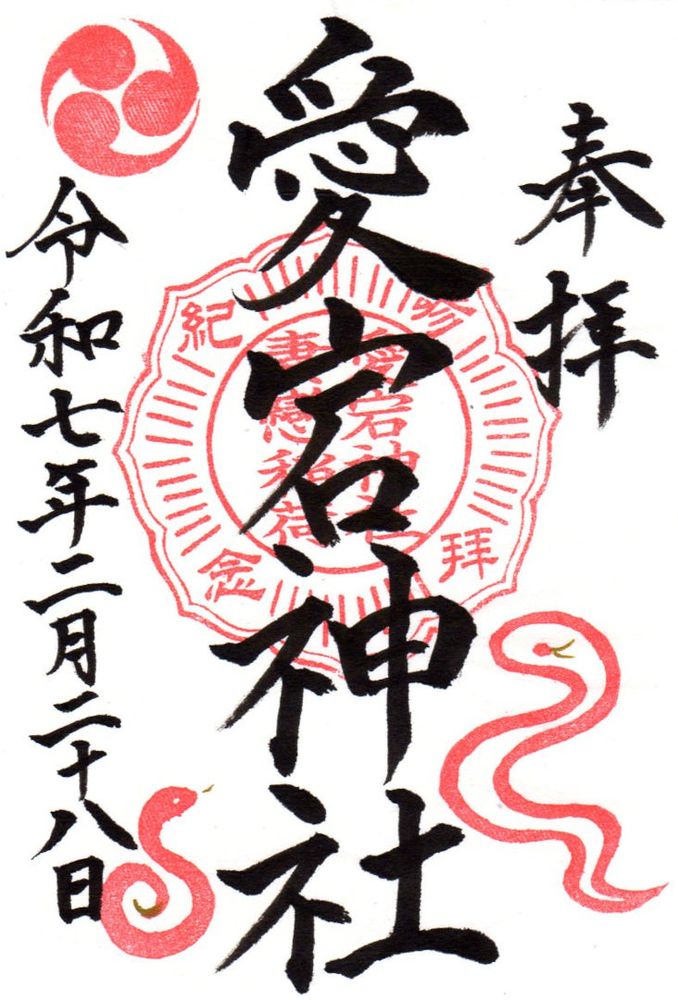 奉拝
愛宕神社
参拝
紀念
愛宕神社
妻恋稲荷
令和七年二月二十八日